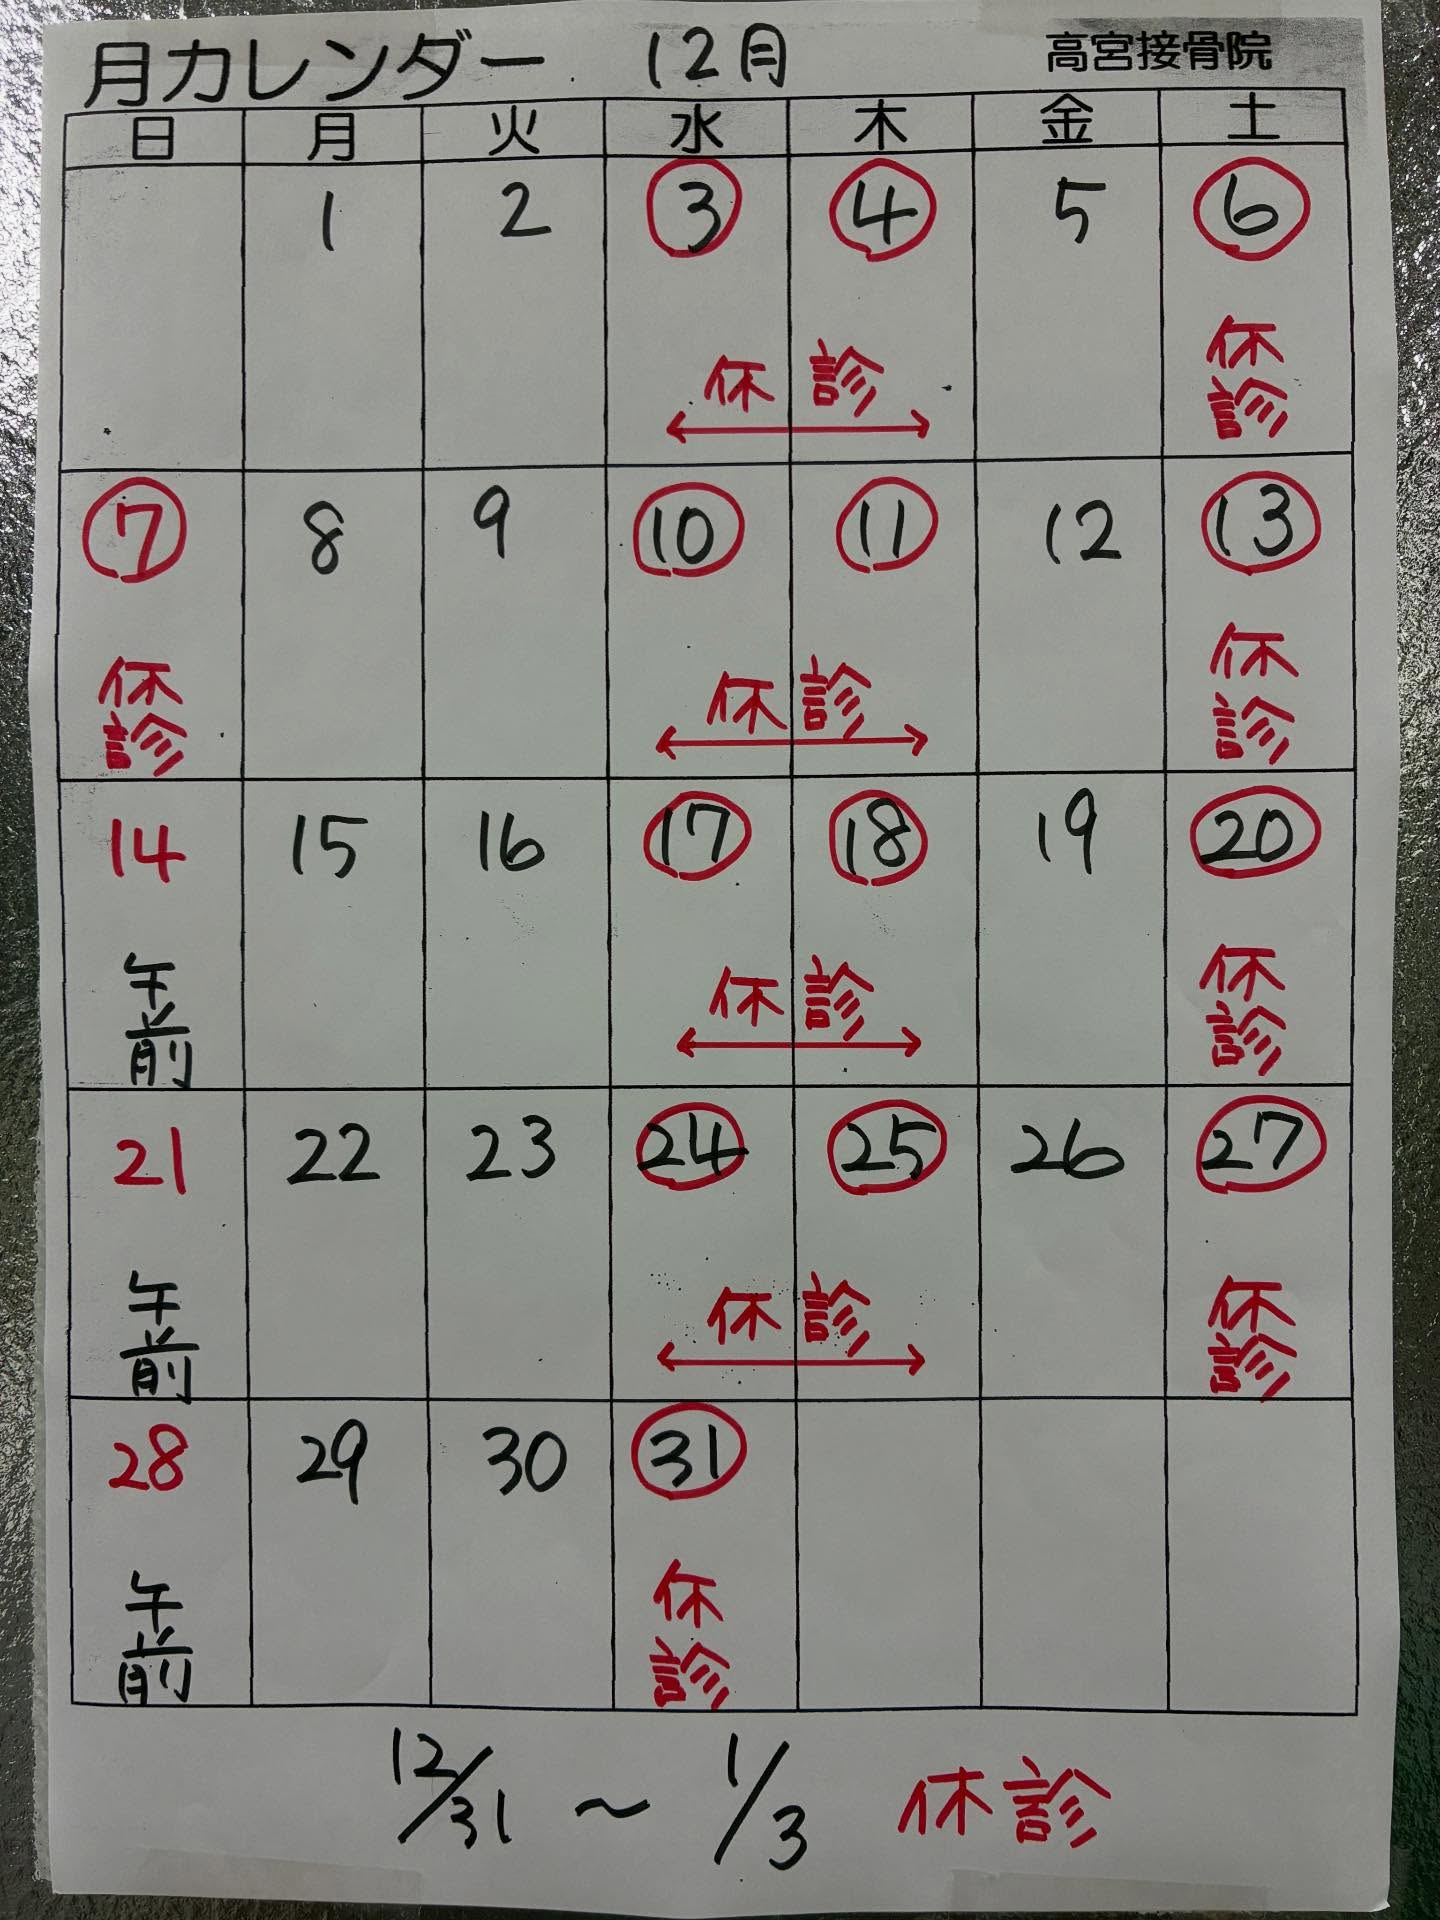 月カレンダー 12月 高宮接骨院
日 月 火 水 木 金 土
1 2 3 4 5 6
休診 休診
7 8 9 10 11 12 13
休診 休診 休診
14 15 16 17 18 19 20
午前 休診 休診
21 22 23 24 25 26 27
午前 休診 休診
28 29 30 31
午前 休診
12/31 ~ 1/3 休診